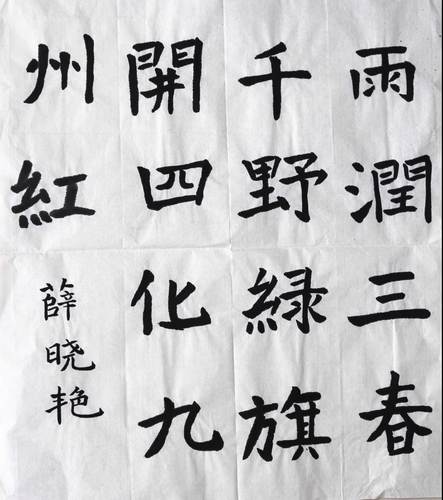 雨潤三春
千野綠旗
開四化九
州紅
薛晓艳